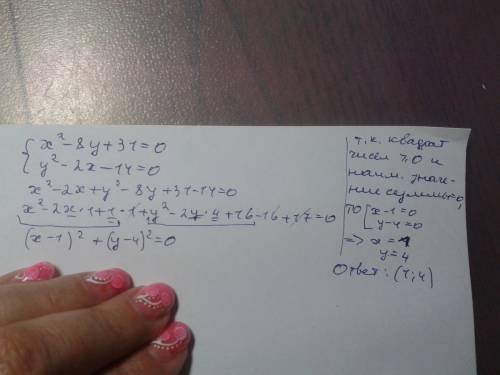 { x² - 8y + 31 = 0
y² - 2x - 14 = 0
x² - 2x + y² - 8y + 31 - 14 = 0
x² - 2x·1 + 1 - 1 + y² - 2y·4 + 16 - 16 + 17 = 0
(x - 1)² + (y - 4)² = 0
т.к. квадрат
чисел ⩾ 0 и
наим. значе-
ние суммы = 0,
то [ x - 1 = 0
y - 4 = 0
=> x = 1
y = 4
Ответ: (1; 4)